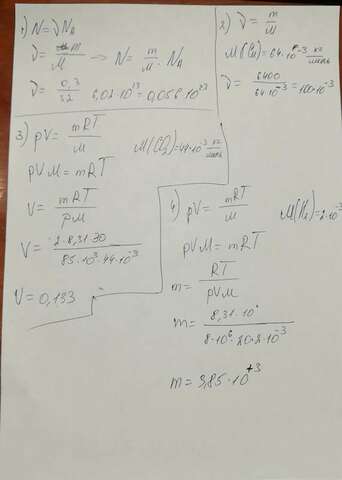 1) N = νN_A
ν = m/M → N = m/M · N_A
ν = 0,3/32 6,02·10²³ = 0,056·10²³
2) ν = m/M
M(Cu) = 64·10⁻³ кг/моль
ν = 6400/64·10⁻³ = 100·10⁻³
3) pV = mRT/M
pVM = mRT
V = mRT/pM
V = 2·8,31·30/85·10³·44·10⁻³
V = 0,133
4) pV = mRT/M
pVM = mRT
m = RT/pVM
8·10⁶·20·2·10⁻³
m = 3,85·10⁺³